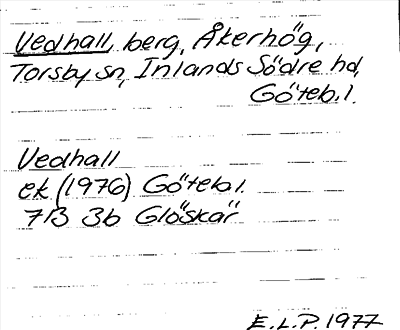 Vedhall, berg, Åkerhög,
Torsby sn, Inlands Södre hd,
Göteb.l.
Vedhall
ek (1976) Göteb.l.
7B 3b Glöskär
E.L.P. 1977